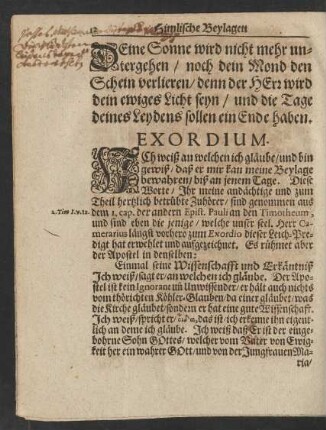 12 Himlische Beylagen
DEine Sonne wird nicht mehr un-
tergehen / noch dein Mond den
Schein verlieren / denn der HErr wird
dein ewiges Licht seyn / und die Tage
deines Leydens sollen ein Ende haben.
EXORDIUM.
ICh weiß an welchen ich gläube / und bin
gewiß / daß er mir kan meine Beylage
bewahren / biß an jenem Tage. Diese
Worte / Ihr meine andächtige und zum
Theil hertzlich betrübte Zuhörer / sind genommen aus
dem 1. cap. der andern Epist. Pauli an den Timotheum,
2. Tim. I. v. 12.
und sind eben die jenige / welche unser seel. Herr Ca-
merarius längst vorherd zum Exordio dieser Leich-Pre-
digt hat erwehlet und aufgezeichnet. Es rühmet aber
der Apostel in denselben:
Einmal seine Wissenschafft und Erkäntniß
Ich weiß / sagt er an welchen ich gläube. Der Apo-
stel ist kein Ignorant uñ Unwissender / er hält auch nichts
vom thörichten Köhler-Glauben da einer gläubet / was
die Kirche gläubet / sondern er hat eine gute Wissenschafft.
Ich weiß / spricht er / das ist ich erkenne ihn eigent-
lich an deme ich gläube. Ich weiß daß Er ist der einge-
bohrne Sohn Gottes / welcher vom Vater von Ewig-
keit her ein wahrer GOtt / und von der Jungfrauen Ma-
ria /